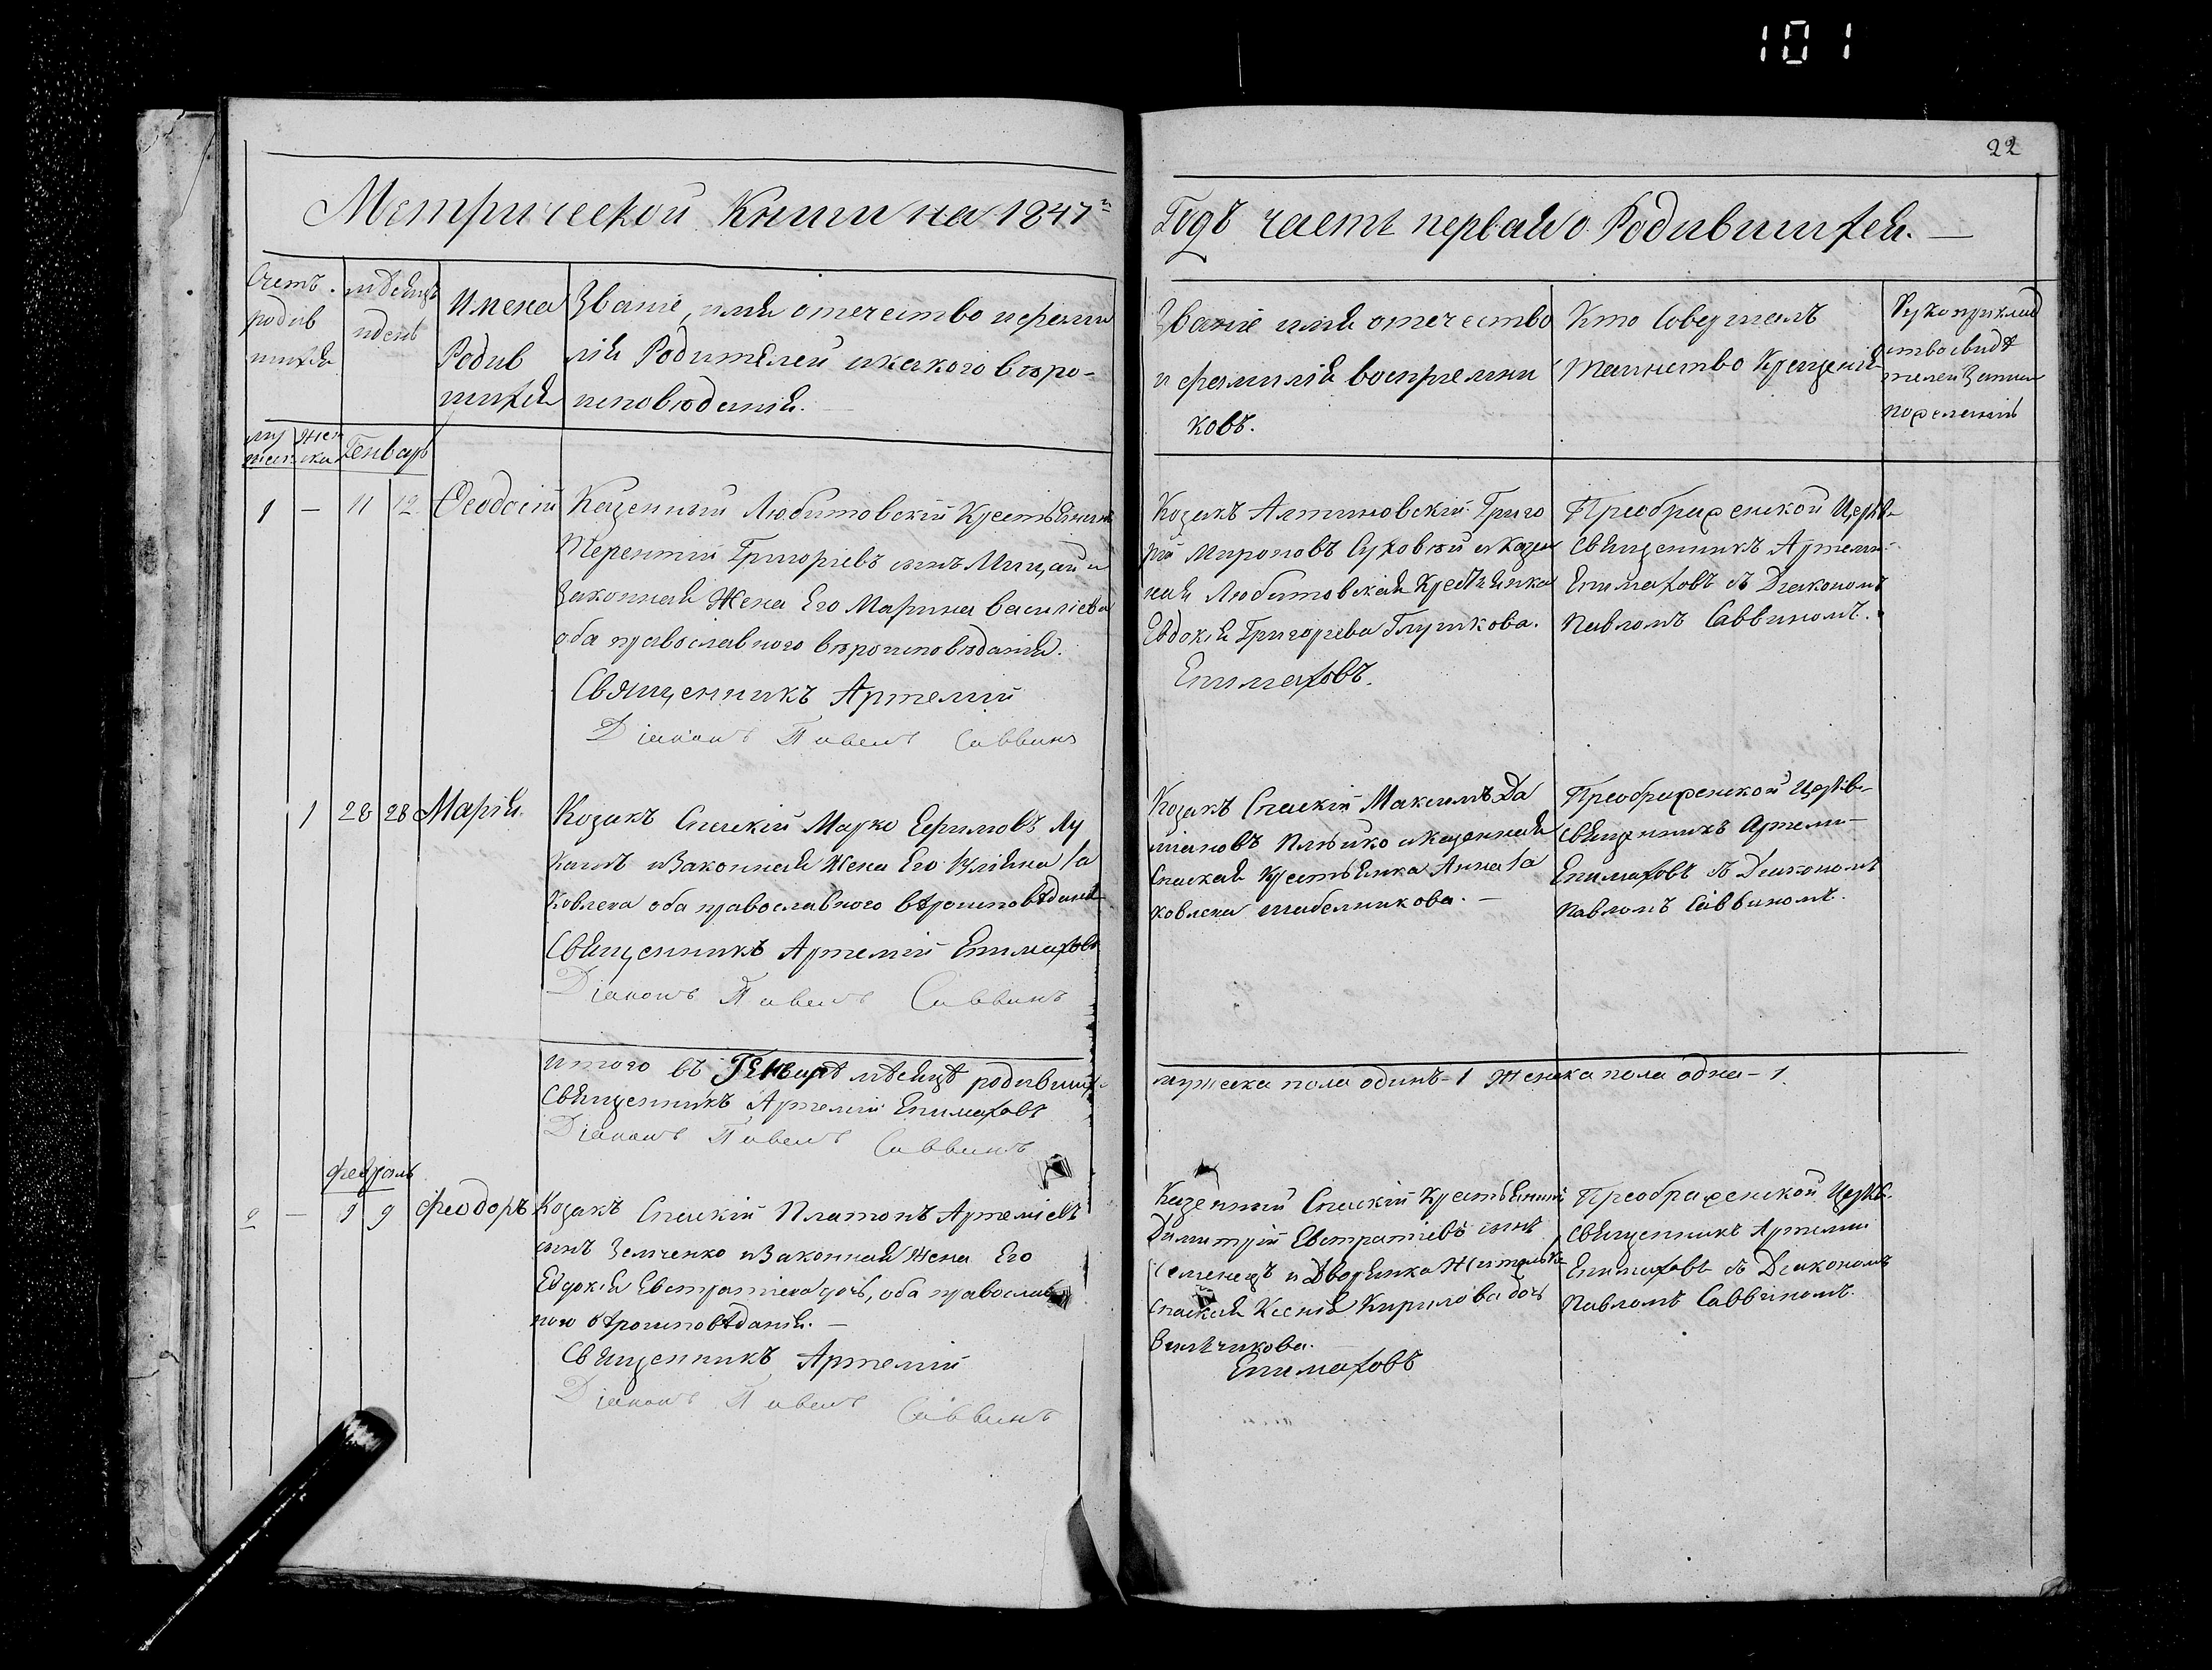 101
22
Метрической Книги на 1847й
Годъ часть первая о Родившихся.
Счетъ родившихся
мѣсяцъ и день
Имена Родившихся
Званіе, имя отечество и фамилія Родителей и какого вѣроисповѣданія.
Званіе имя отечество и фамилія воспріемниковъ.
Кто Совершалъ таинство Крещенія
Рукоприкладство свидѣтелей
Генварь
1 — 11 12 Ѳеодосій
Казенный Любитовскій Крестьянинъ
Терентій Григоріевъ сынъ и
Законная Жена Его Марина Василіева
оба православного вѣроисповѣданія.
Священникъ Артемій
Діаконъ Павелъ Саввинъ
Козакъ Алтиновскій Григо
рій Мироновъ Суховѣй и Казен
ная Любитовская Крестьянка
Евдокія Григорьева Глушкова.
Епимаховъ.
Преображенской Церкви
Священникъ Артемій
Епимаховъ съ Діакономъ
Павломъ Саввиномъ.
1 28 28 Марія.
Козакъ Спаскій Марко Ефимовъ Лу
и Законная Жена Его Уліяна Іа
ковлева оба православного вѣроисповѣданія
Священникъ Артемій Епимаховъ
Діаконъ Павелъ Саввинъ
Козакъ Спаскій Максимъ Да
и Казенная
Спаская Крестьянка Анна Іа
ковлева Шабелникова. —
Преображенской Церкви
Священникъ Артемій
Епимаховъ съ Діакономъ
Павломъ Саввиномъ.
итого въ Генварѣ мѣсяцѣ родивших
мужеска пола одинъ – 1 Женска пола одна – 1.
Священникъ Артемій Епимаховъ
Діаконъ Павелъ Саввинъ
Февраль
2 — 9 9 Феодоръ
Козакъ Спаскій Платонъ Артеміевъ
сынъ Земченко и Законная Жена Его
Евдокія Евстратіева дочь, оба православ
ного вѣроисповѣданія. —
Священникъ Артемій
Діаконъ Павелъ Саввинъ
Казенный Спаскій Крестьянинъ
Димитрій Евстратіевъ сынъ
Семенецъ и Дворянка Жителька
Спаская Ксенія Кирилова дочь
Епимаховъ
Преображенской Церкви
Священникъ Артемій
Епимаховъ съ Діакономъ
Павломъ Саввиномъ.